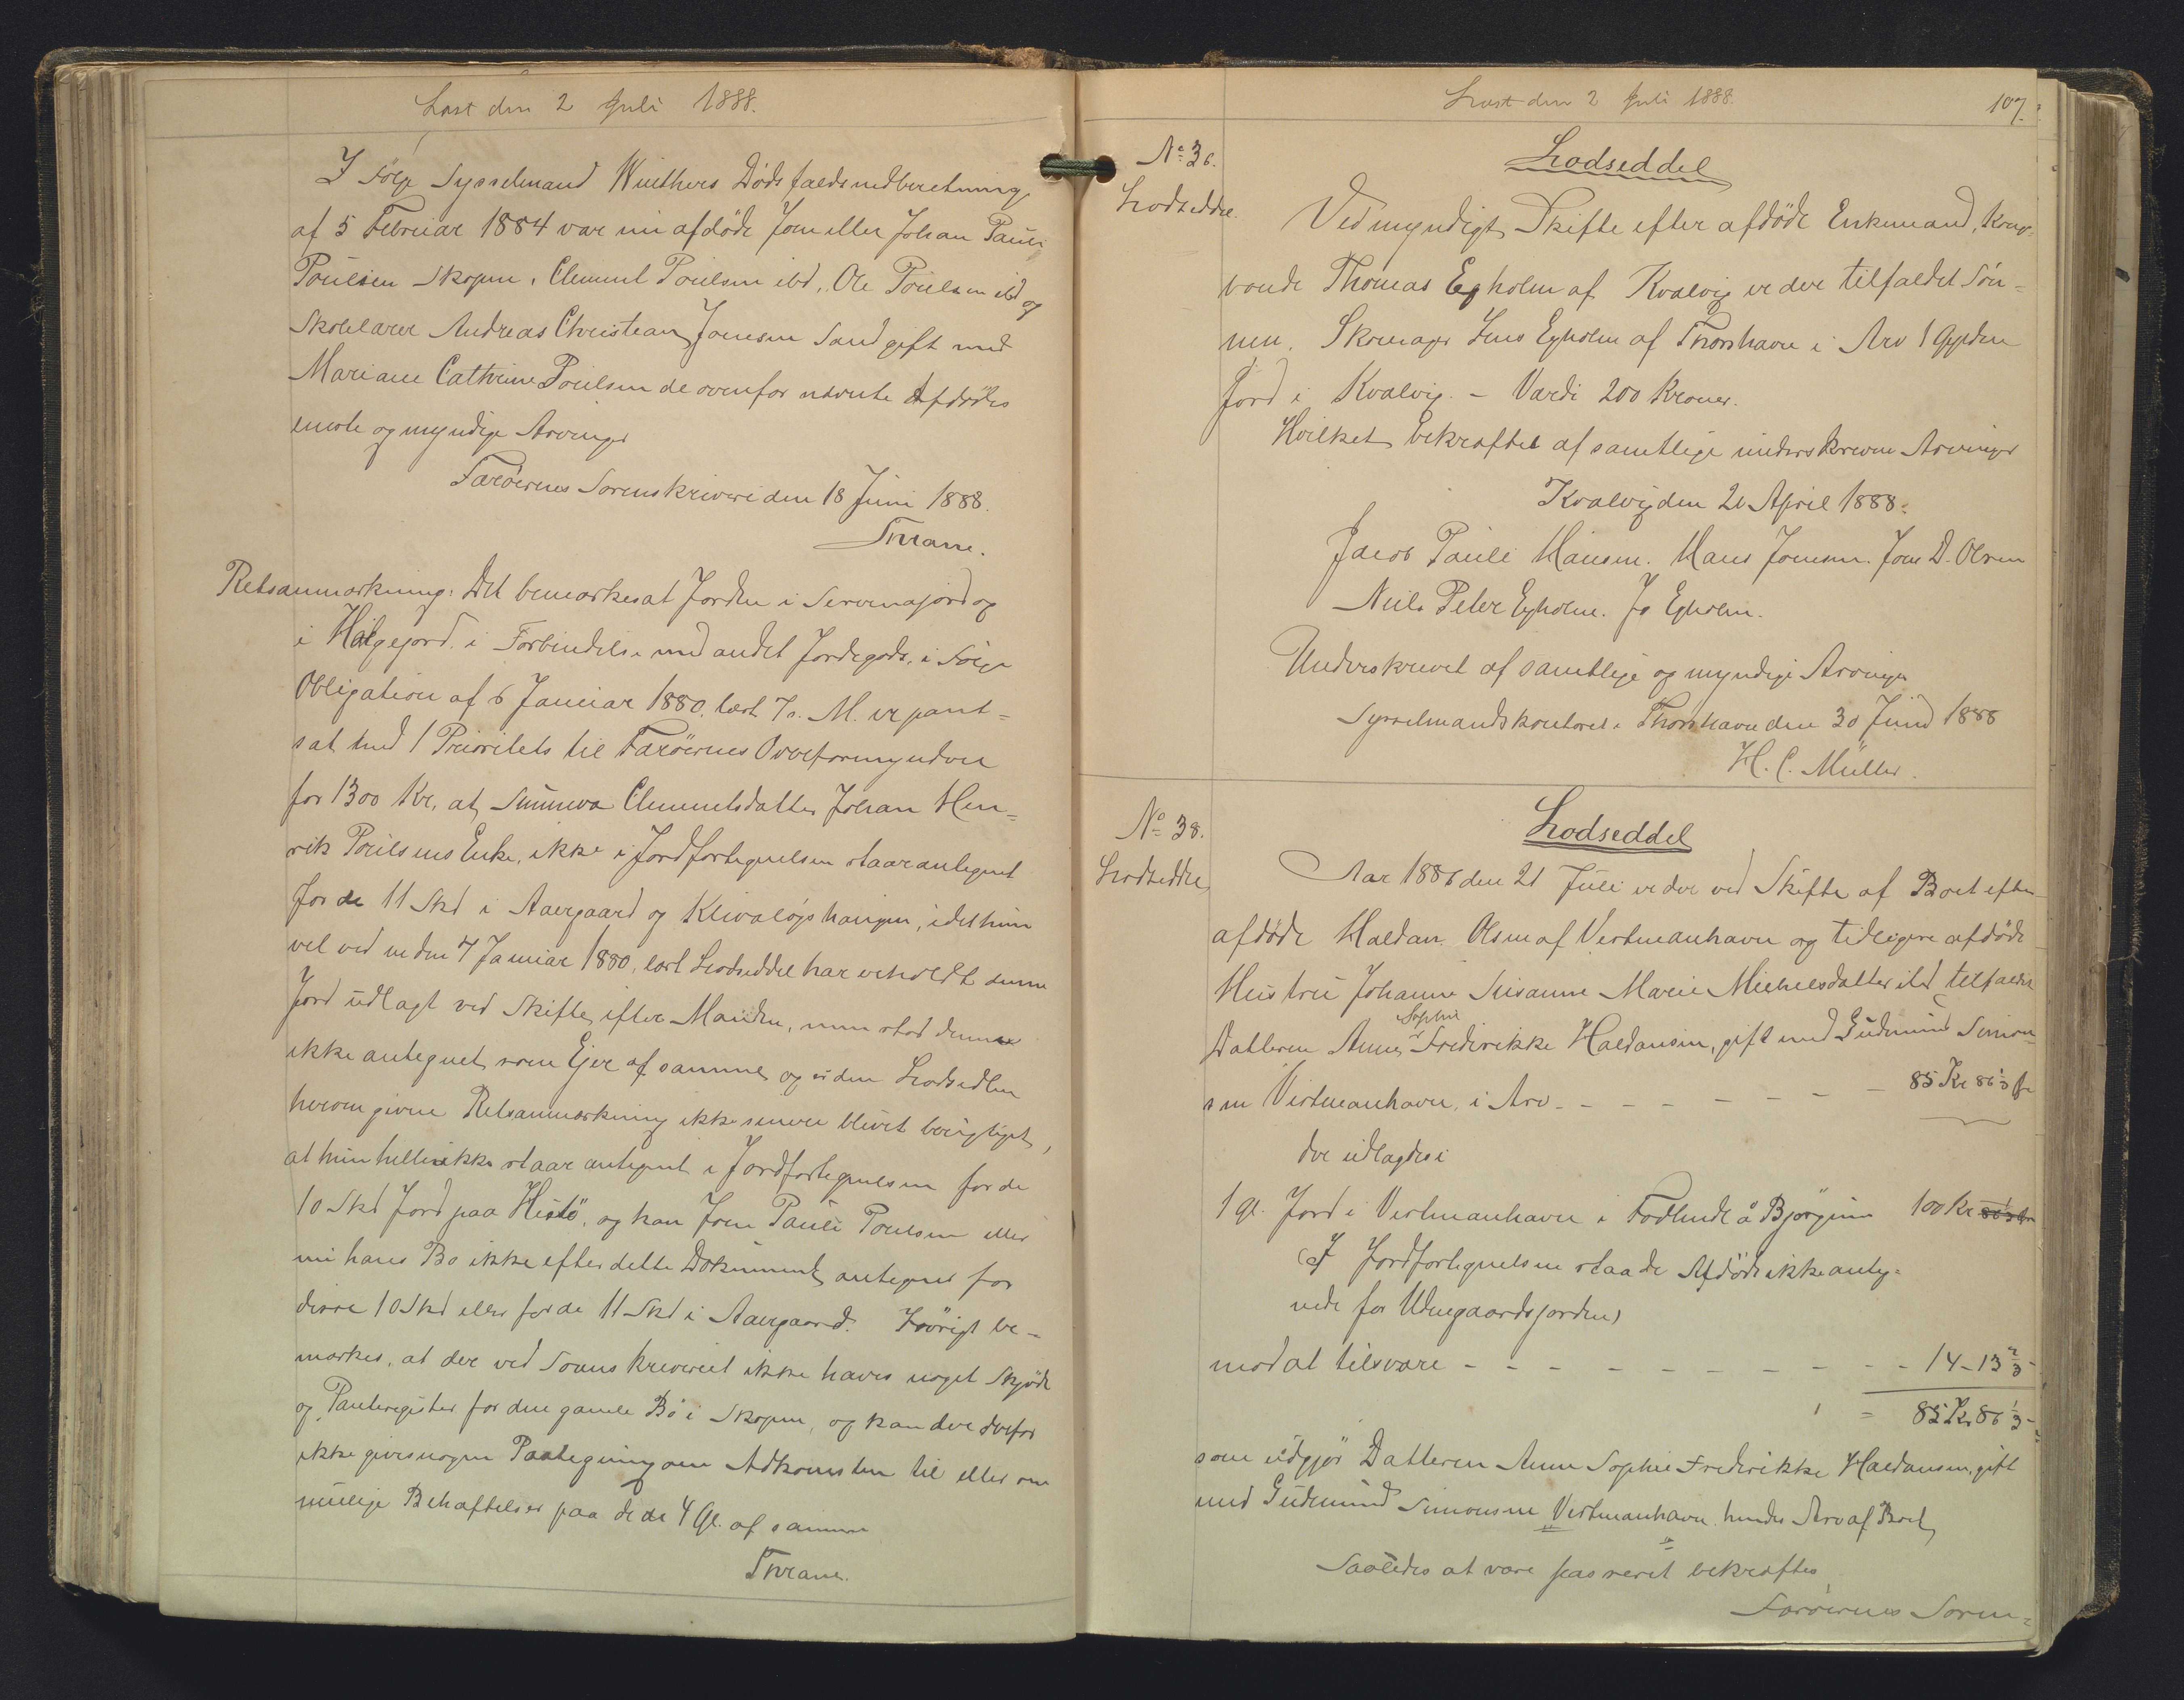 Læst den 2 Juli 1888.
I Følge Sysselmand Winthers Dødsfaldsindberetning
af 5 Februar 1884 var nu afdøde Joen eller Johan Pauli
Poulsen Skopen, Clement Poulsen ibd., Ole Poulsen ibd og
Skolelærer Andreas Christian Joensen Sand gift med
Mariane Cathrine Poulsen de ovenfor nævnte Afdødes
eneste og myndige Arvinger
Færøernes Sorenskriveri den 18 Juni 1888.
Thrane.
Retsanmærkning: Det bemærkes at Jorden i
i Hálgejord i Forbindelse med andet Jordegods, i Følge
Obligation af 6 Januar 1880, læst 7 s. M. er pant=
sat med 1 Prioritets til Færøernes Overformynderi
for 1300 Kr., at Sunneva Clementsdatter Johan Hen=
rik Poulsens Enke, ikke i Jordfortegnelsen staar antegnet
for de 11 Skd i Aaergaard og Klivaløjshaugen, idet hun
vel ved en den 7 Januar 1880, læst Lodseddel har erholdt denne
Jord udlagt ved Skifte efter Manden, men stod denne
ikke antegnet som Ejer af samme og er den Lodsedlen
herom givne Retsanmærkning ikke senere blevet berigtiget,
at hun heller ikke staar antegnet i Jordfortegnelsen for de
10 Skd Jord paa Hestø, og kan Joen Pauli Poulsen eller
nu hans Bo ikke efter dette Dokument antegnes for
disse 10 Skd eller for de 11 Skd i Aaergaard. Iøvrigt be=
mærkes, at der ved Sorenskriveriet ikke haves noget Skjøde
og Panteregister for den gamle Bø i Skopen, og kan der derfor
ikke gives nogen Paategning om Adkomsten til eller om
mulige Behæftelser paa de 4 Gl. af samme
Thrane.
Læst den 2 Juli 1888.
107.
No 36.
Lodseddel.
Lodseddel
Ved myndigt Skifte efter afdøde Enkemand, Kongs=
bonde Thomas Egholm af Kvalvig er der tilfaldet Søn=
nen, Skomager Jens Egholm af Thorshavn i Arv 1 Gylden
Jord i Kvalvig. - Værdi 200 Kroner.
Hvilket bekræftes af samtlige underskrevne Arvinger
Kvalvig den 20 April 1888.
Jacob Pauli Hansen. Hans Joensen. Joen D. Olsen
Niels Peter Egholm. Js Egholm.
Underskrevet af samtlige og myndige Arvinger
Sysselmandskontoret i Thorshavn den 30 Juni 1888
H. C. Müller.
No 38.
Lodseddel
Lodseddel
Aar 1886 den 21 Juli er der ved Skifte af Boet efter
afdøde Haldan Olsen af Vestmanhavn og tidligere afdøde
Hustru Johanne Susanne Marie Michelsdatter ibd tilfaldet
Datteren Anne Sophie Frederikke Haldansen, gift med Gudmund Simon=
sen Vestmanhavn, i Arv - - - - - - - 85 Kr 86 1/3 Ør
der udlagdes i
1 Gl. Jord i Vestmanhavn i Fodlendi å Bjørginn 100 Kr
(I Jordfortegnelsen staa de Afdøde ikke anteg=
nede for Udengaardsjorden)
mod at tilsvare - - - - - - - - - - - 14 - 13 2/3 -
= 85 Kr 86 1/3 -
som udgjør Datteren Anne Sophie Frederikke Haldansen, gift
med Gudmund Simonsen Vestmanhavn hendes Arv af Boet
Saaledes at være passeret bekræftes
Færøernes Soren=